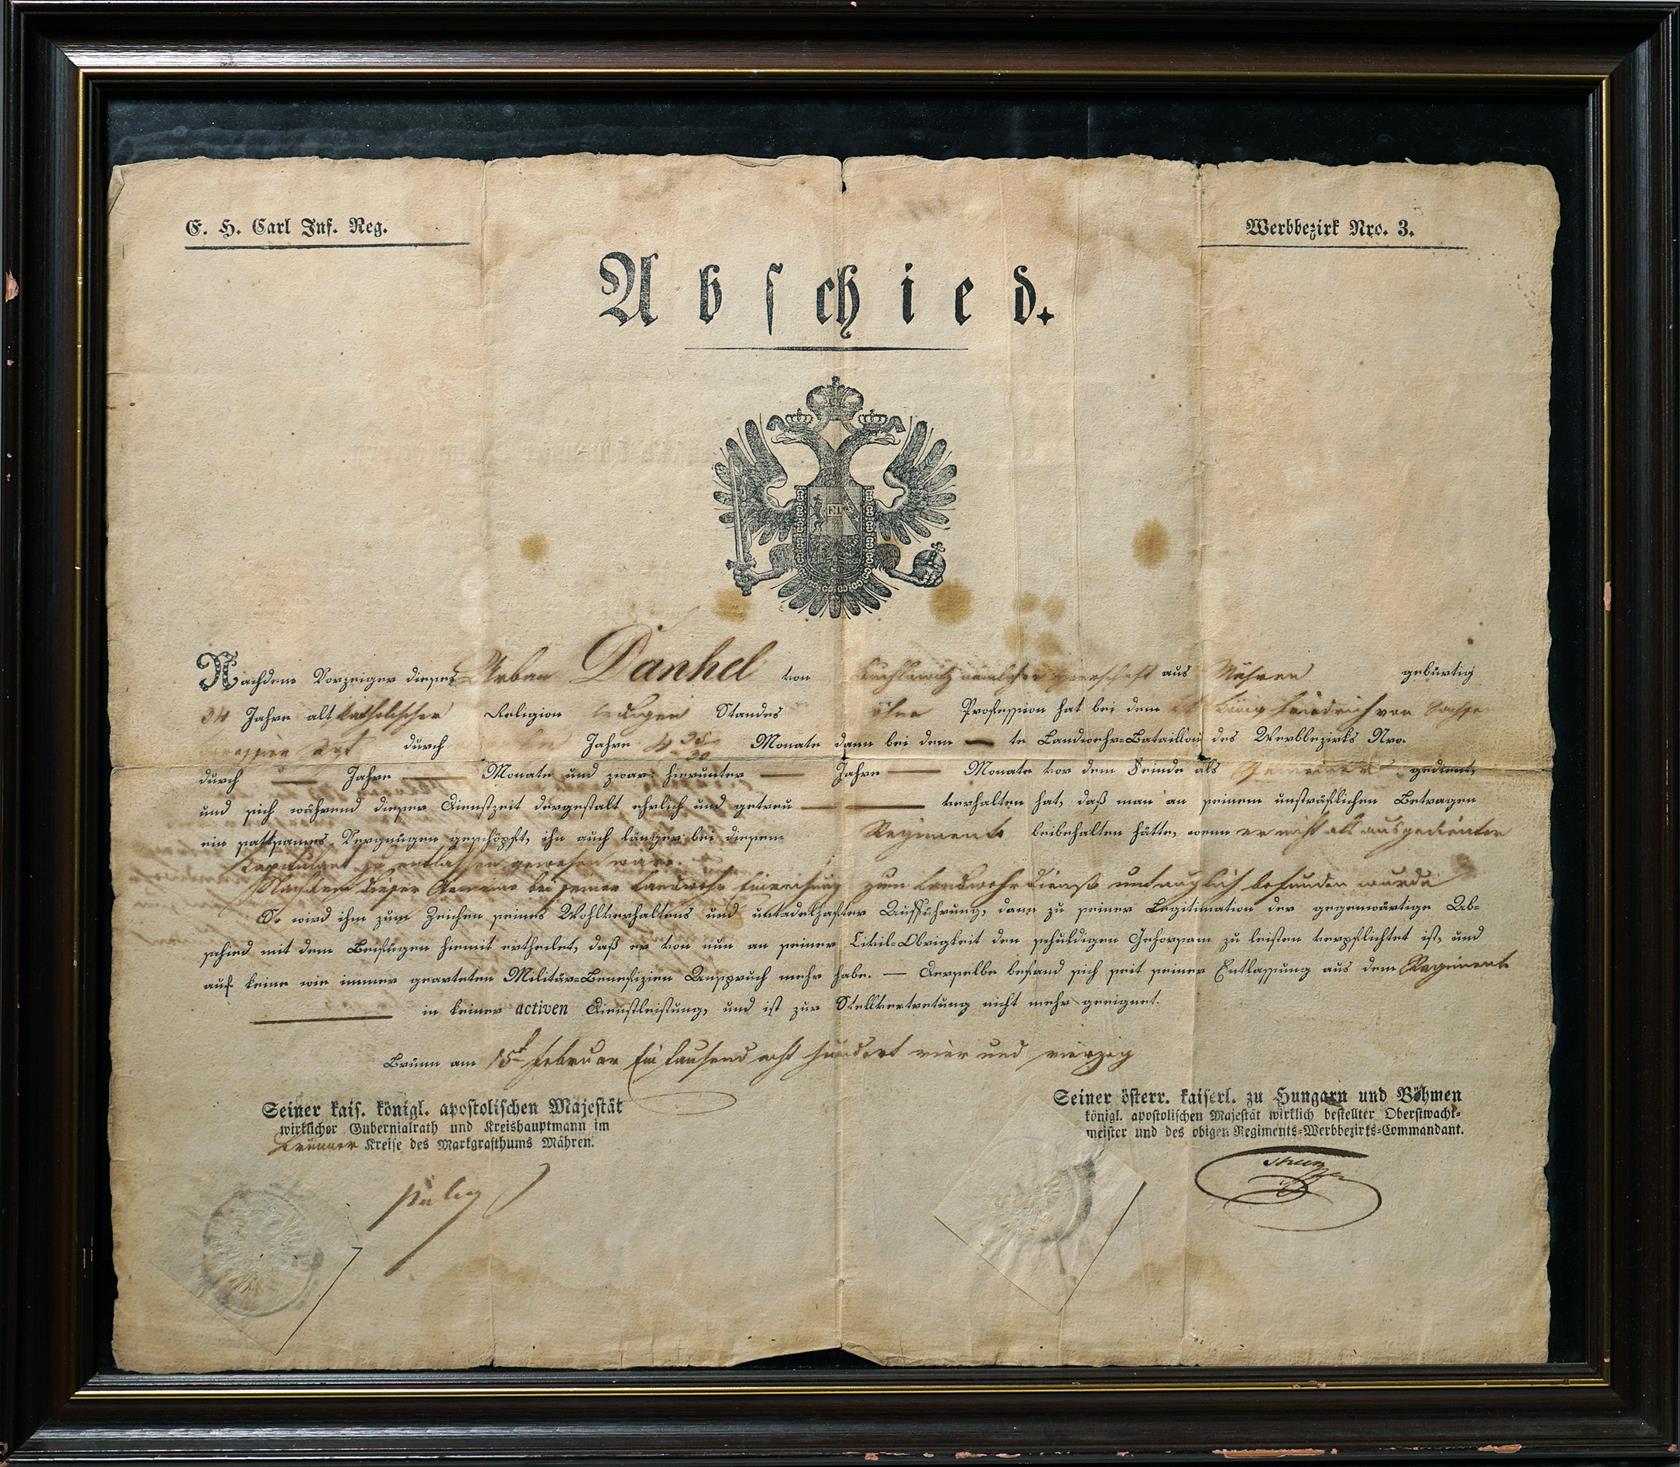 E. H. Carl Inf. Reg.
Werbbezirk Nro. 3.
Abschied.
Nachdem Vorzeiger dieses Urban Danhel von aus Mähren gebürtig
34 Jahre alt katholischer Religion ledigen Standes ohne Profession hat bei dem König Friedrich von
durch Jahre Monate dann bei dem — te Landwehr-Bataillon des Werbbezirks Nro.
durch — Jahre — Monate und zwar: hierunter — Jahre — Monate vor dem Feinde als gedient,
und sich während dieser Dienstzeit dergestalt ehrlich und getreu — verhalten hat, daß man an seinem unsträflichen Betragen
ein sattsames Vergnügen geschöpft, ihn auch länger bei diesem Regimente beibehalten hätte, wenn er nicht als ausgedienter
Kapitulant zu entlassen gewesen wäre.
Nachdem dieser Gemeine bei seiner Landwehr Einreihung zum Landwehrdienst untauglich befunden wurde
So wird ihm zum Zeichen seines Wohlverhaltens und untadelhafter Aufführung, dann zu seiner Legitimation der gegenwärtige Ab-
schied mit dem Beifügen hiemit ertheilet, daß er von nun an seiner Civil-Obrigkeit den schuldigen Gehorsam zu leisten verpflichtet ist, und
auf keine wie immer gearteten Militär-Benefizien Anspruch mehr habe. — Derselbe befand sich seit seiner Entlassung aus dem Regimente
in keiner activen Dienstleistung, und ist zur Stellvertretung nicht mehr geeignet.
Brünn am 15t Februar Ein tausend acht hundert vier und vierzig
Seiner kais. königl. apostolischen Majestät
wirklicher Gubernialrath und Kreishauptmann im
Brünner Kreise des Markgrafthums Mähren.
Seiner österr. kaiserl. zu Hungarn und Böhmen
königl. apostolischen Majestät wirklich bestellter Oberstwacht-
meister und des obigen Regiments-Werbbezirks-Commandant.